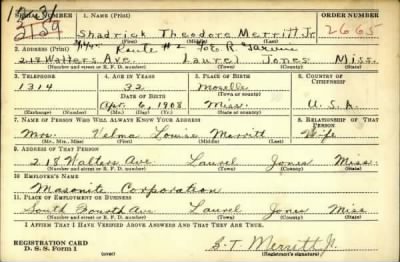 SERIAL NUMBER
1. NAME (Print)
ORDER NUMBER
2139
Shadrick Theodore Merritt Jr.
2665
(First) (Middle) (Last)
Route #2
2. ADDRESS (Print)
218 Walters Ave. Laurel Jones Miss.
(Number and street or R. F. D. number) (Town) (County) (State)
3. TELEPHONE
4. AGE IN YEARS
5. PLACE OF BIRTH
6. COUNTRY OF CITIZENSHIP
1314
32
Moselle
(Town or county)
DATE OF BIRTH
Apr. 6, 1908
Miss.
U.S.A.
(Exchange) (Number)
(Mo.) (Day) (Yr.)
(State or country)
7. NAME OF PERSON WHO WILL ALWAYS KNOW YOUR ADDRESS
8. RELATIONSHIP OF THAT PERSON
Mrs. Velma Louise Merritt
Wife
(Mr., Mrs., Miss) (First) (Middle) (Last)
9. ADDRESS OF THAT PERSON
218 Walters Ave Laurel Jones Miss.
(Number and street or R. F. D. number) (Town) (County) (State)
10. EMPLOYER'S NAME
Masonite Corporation
11. PLACE OF EMPLOYMENT OR BUSINESS
South Fourth Ave Laurel Jones Miss
(Number and street or R. F. D. number) (Town) (County) (State)
I AFFIRM THAT I HAVE VERIFIED ABOVE ANSWERS AND THAT THEY ARE TRUE.
REGISTRATION CARD
D. S. S. Form 1
(over)
S. T. Merritt Jr.
(Registrant's signature)